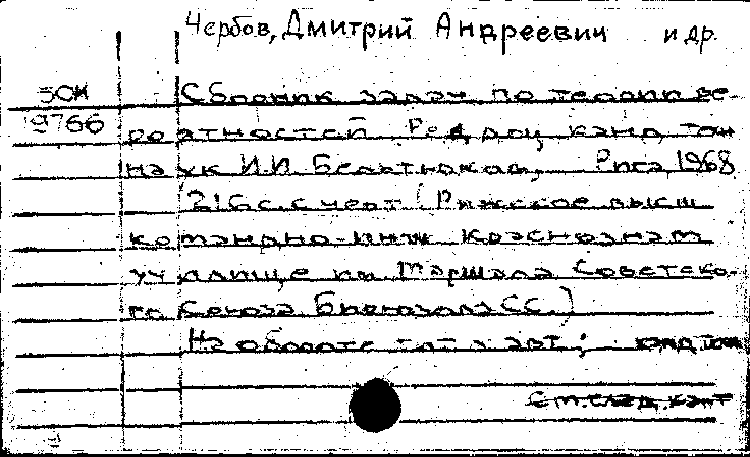 Чербов, Дмитрий Андреевич и др.
5СК Сборник задач по теории ве-
19766 роятностей Ред. доц. канд. тех
наук И.И. Рига, 1968
216 с. с черт (Рижское высш
командно-инж краснознам
училище им Маршала Советско-
го Союза Бирюзова СС.)
На обороте тит л авт:
См. след. карт